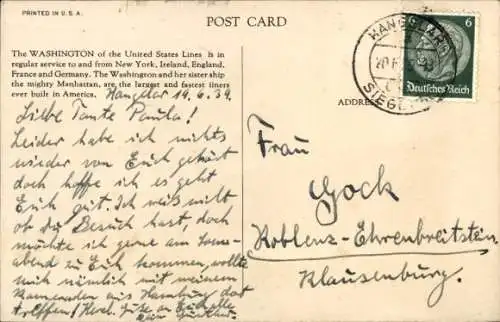 PRINTED IN U.S.A.
POST CARD
The WASHINGTON of the United States Lines is in
regular service to and from New York, Ireland, England,
France and Germany. The Washington and her sister ship
the mighty Manhattan, are the largest and fastest liners
ever built in America.
Hangelar 19.6.39
Liebe Tante Paula!
Leider habe ich nichts
wieder von Euch gehört
doch hoffe ich es geht
Euch gut. Ich weiß nicht
ob du Besuch hast, doch
möchte ich gerne am Sonn-
abend zu Euch kommen, wollte
mich nämlich mit meinem
Kameraden aus Hamburg dort
treffen. Herzl. Grüße an Euch alle
Dein
ADDRESS
Frau
Gock
Koblenz-Ehrenbreitstein
Klausenburg.
HANGELAR
SIEG
6
Deutsches Reich